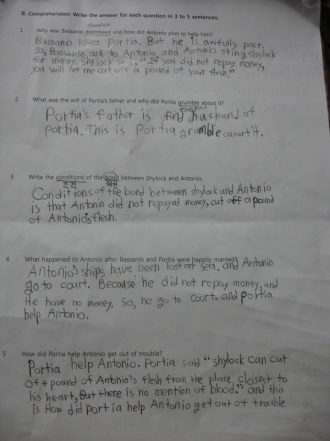 B. Comprehension: Write the answer for each question in 3 to 5 sentences.
1 Why was Bassanio depressed and how did Antonio plan to help him?
Bassanio loves Portia. But he is awfully poor.
So, Bassanio ask to Antonio, and Antonio
for money. Shylock said "If you did not repay money,
you will let me cut off a pound of your flesh"
2 What was the will of Portia's father and why did Portia grumble about it?
Portia's father is find husband of
portia. This is Portia grumble about it.
3 Write the conditions of the bond between Shylock and Antonio.
Conditions of the bond between shylock and Antonio
is that Antonio did not repayed money, cut off a pound
of Antonio's flesh.
4 What happened to Antonio after Bassanio and Portia were happily married?
Antonio's ships have been lost at sea, and Antonio
go to court. Because he did not repay money, and
He have no money. So, he go to court. and portia
help Antonio.
5 How did Portia help Antonio get out of trouble?
Portia help Antonio. Portia said "shylock can cut
off a pound of Antonio's flesh from the place closet to
his heart, But there is no mention of blood." and this
is How did portia help Antonio get out of trouble